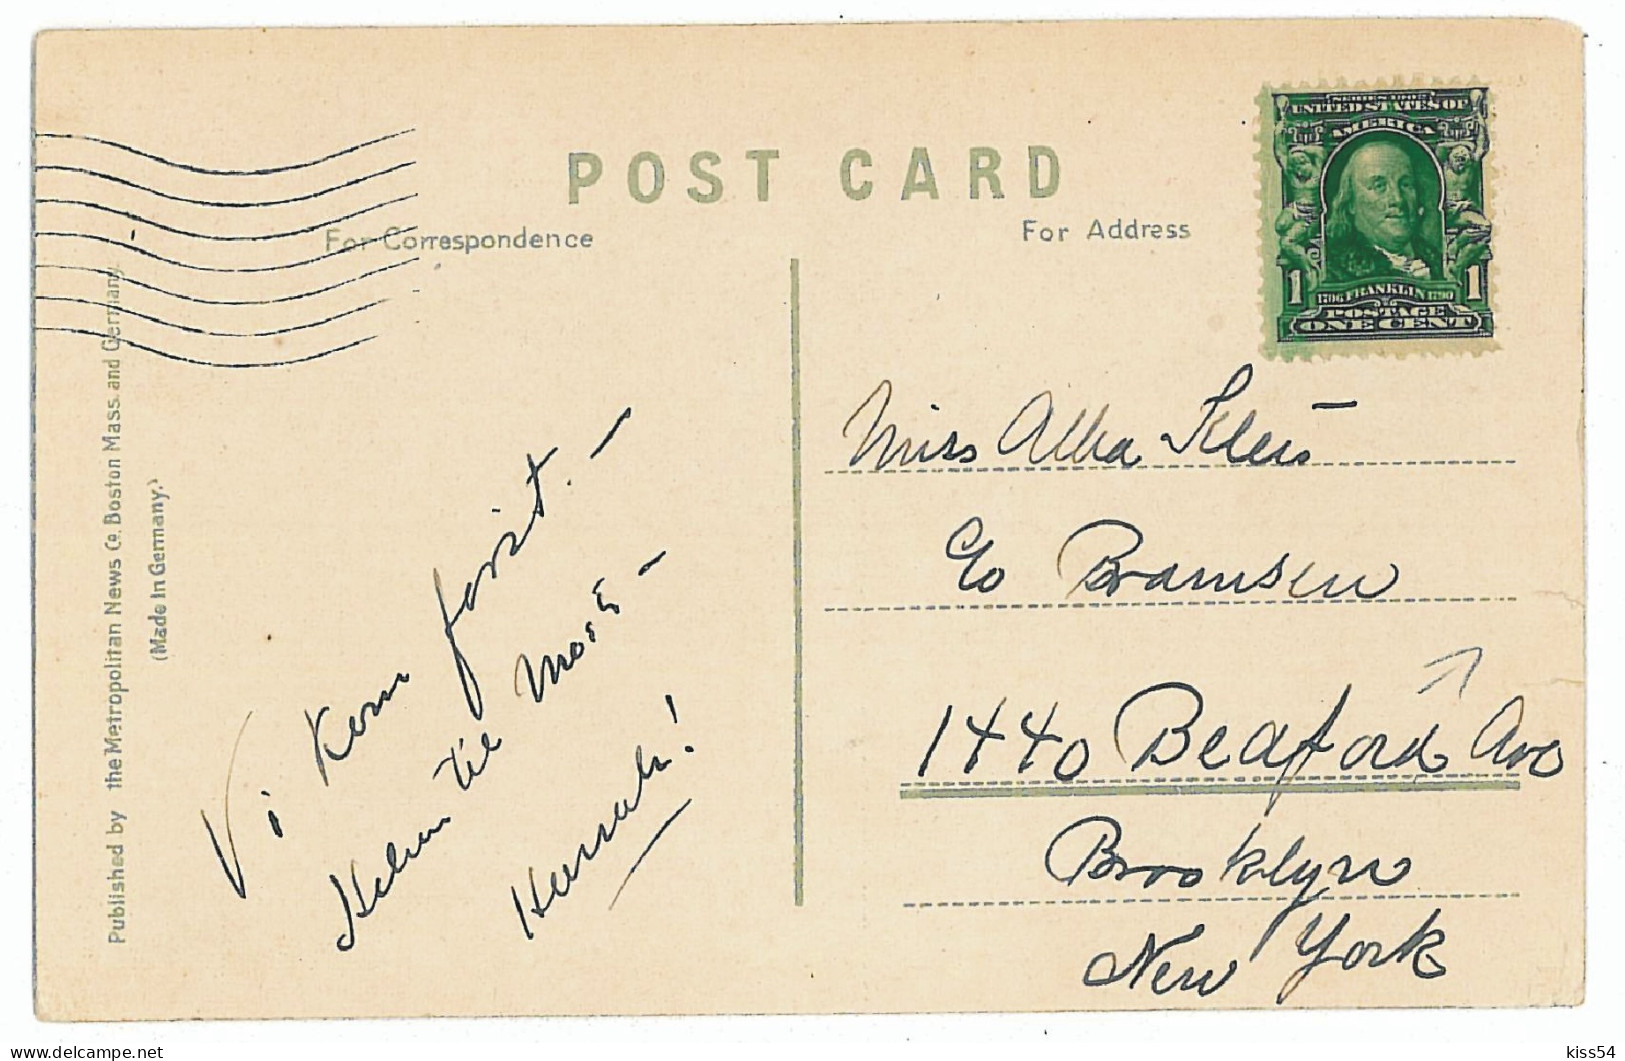 POST CARD
For Correspondence
For Address
SERIES 1902
UNITED STATES OF
AMERICA
1 1706 FRANKLIN 1790 1
POSTAGE
ONE CENT
Published by the Metropolitan News Co. Boston Mass. and Germany.
(Made In Germany.)
Vi Kom først. –
til
Hurrah!
Miss
c/o Bramsen
1440 Beaford Ave
Brooklyn
New York
delcampe.net
kiss54